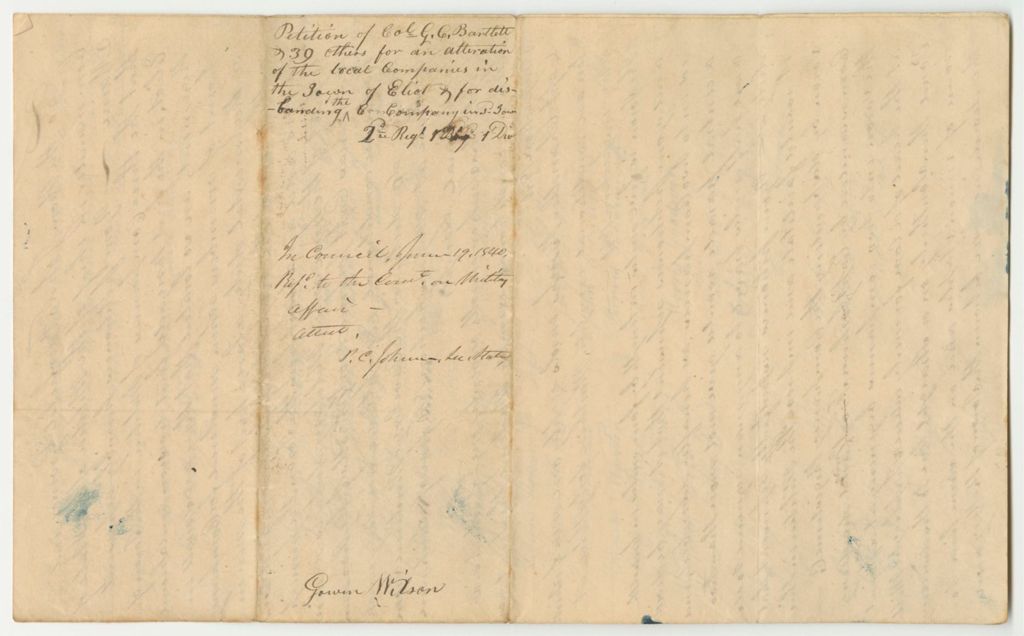 Petition of Col. G. C. Bartlett
& 39 others for an alteration
of the local Companies in
the Town of Eliot & for dis-
-banding the C Company in sd. Town
2nd Regt 1 Brig 1 Div
In Council, June 19, 1840.
Refd. to the Comte. on Military
affairs –
attest,
P. C. Johnson, Sec. State
Gowen Wilson